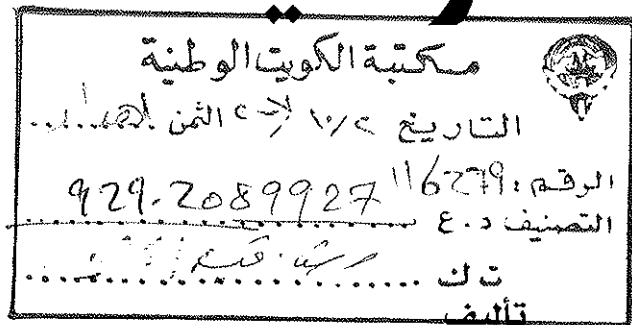 مكتبة الكويت الوطنية
التاريخ ١٠/٢ الثمن إهداء
الرقم: 116279
التصنيف د.ع 929.2089927
ت ك
تأليف